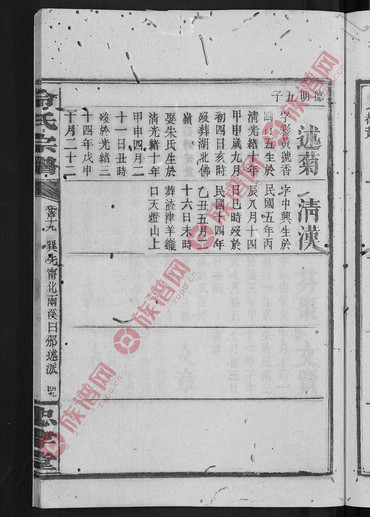 德明五子
述菊
字彩黃號香
五生於
清光緒十年
甲申歲九月
初四日亥時
歿葬湖北佛
嶺
娶朱氏生於
清光緒十年
甲申四月二
十一日丑時
歿於光緒三
十四年戊申
十月二十二
清漢
字中興生於
民國五年丙
辰八月十四
日巳時歿於
民國十四年
乙丑五月二
十六日未時
葬渣津羊鐵
口天都山上
氏宗譜
兩溪日邠述派
族谱网
zupu.cn